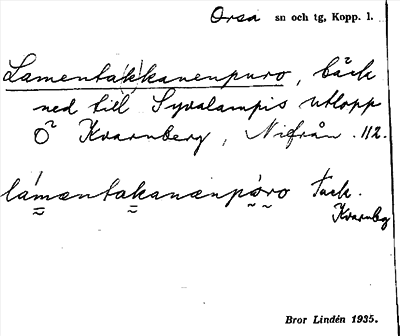 Orsa sn och tg, Kopp. l.
Lamenta(k)kanenpuro, bäck
ned till Syvalampis utlopp
Ö Kvarnberg, Nifrån. 112.
lámæntakanænpåro Tack.
Kvarnbg
Bror Lindén 1935.